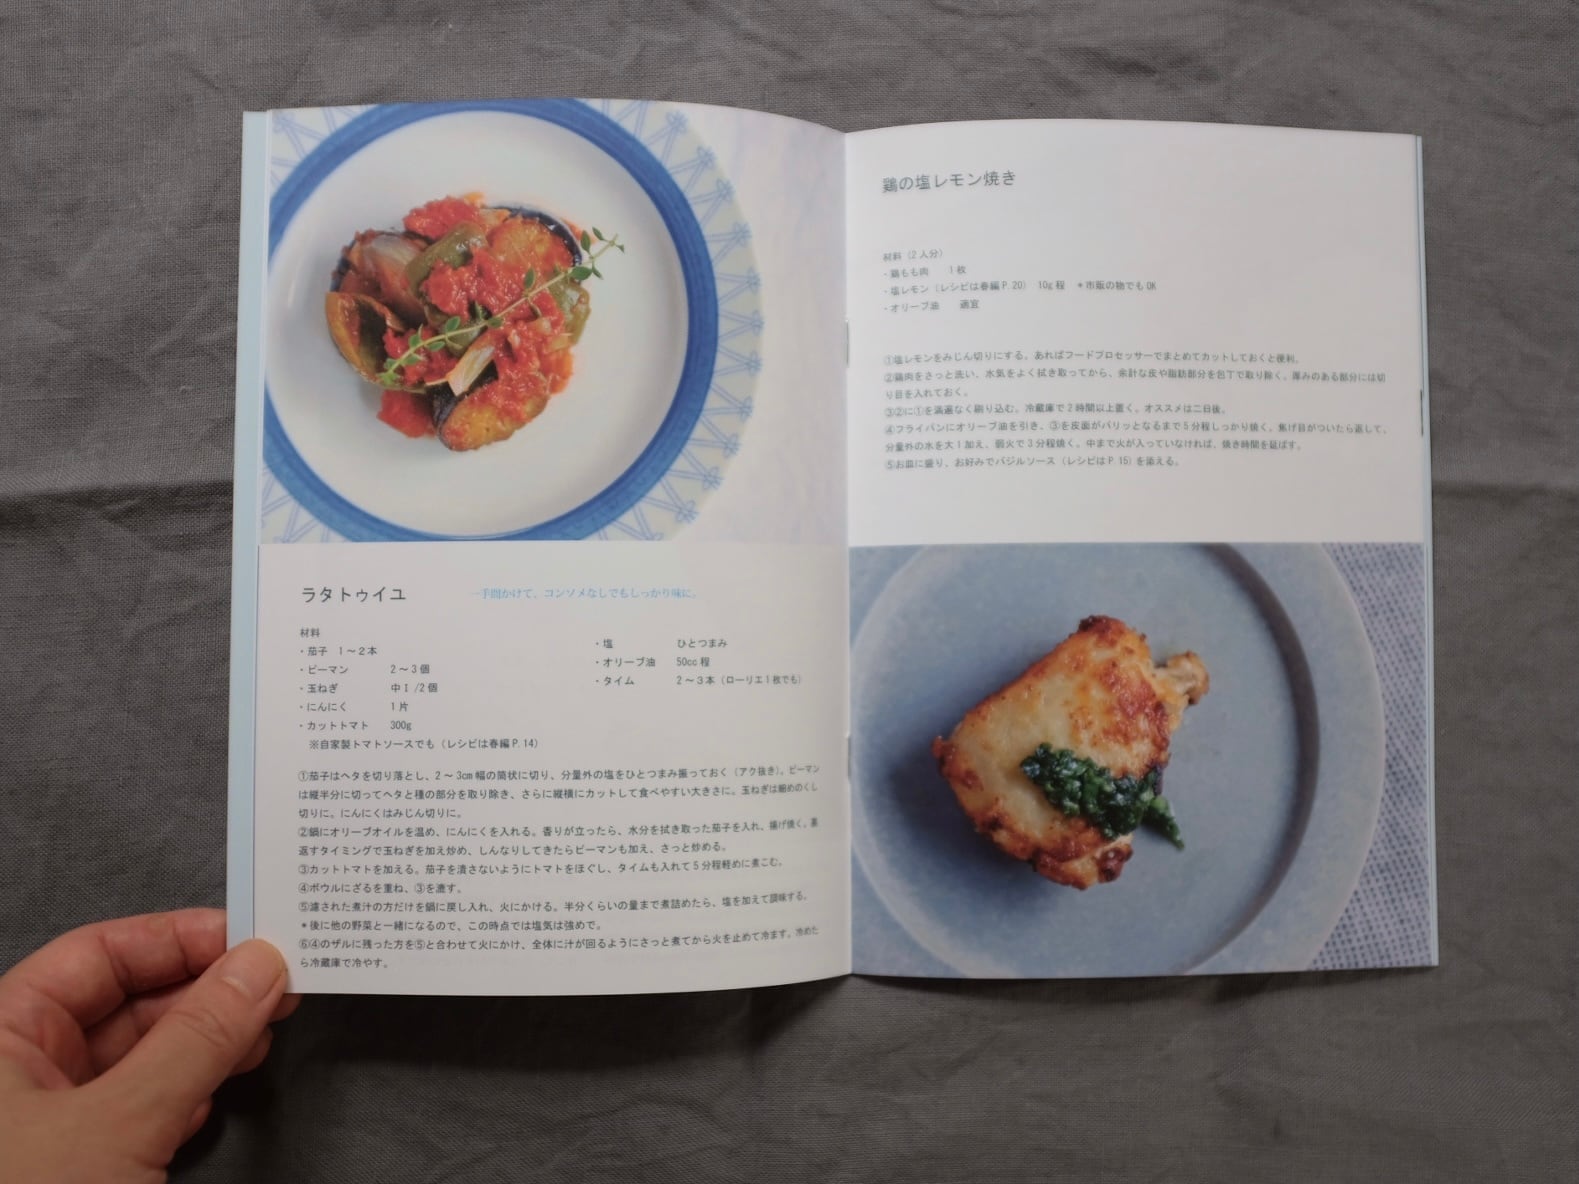 ラタトゥイユ
一手間かけて、コンソメなしでもしっかり味に。
材料
・茄子 1～2本
・ピーマン 2～3個
・玉ねぎ 中1/2個
・にんにく 1片
・カットトマト 300g
※自家製トマトソースでも（レシピは春編P.14）
・塩 ひとつまみ
・オリーブ油 50cc程
・タイム 2～3本（ローリエ1枚でも）
①茄子はヘタを切り落とし、2～3cm幅の筒状に切り、分量外の塩をひとつまみ振っておく（アク抜き）。ピーマン
は縦半分に切ってヘタと種の部分を取り除き、さらに縦横にカットして食べやすい大きさに。玉ねぎは細めのくし
切りに。にんにくはみじん切りに。
②鍋にオリーブオイルを温め、にんにくを入れる。香りが立ったら、水分を拭き取った茄子を入れ、揚げ焼く。裏
返すタイミングで玉ねぎを加え炒め、しんなりしてきたらピーマンも加え、さっと炒める。
③カットトマトを加える。茄子を潰さないようにトマトをほぐし、タイムも入れて5分程軽めに煮こむ。
④ボウルにざるを重ね、③を漉す。
⑤濾された煮汁の方だけを鍋に戻し入れ、火にかける。半分くらいの量まで煮詰めたら、塩を加えて調味する。
＊後に他の野菜と一緒になるので、この時点では塩気は強めで。
⑥④のザルに残った方を⑤と合わせて火にかけ、全体に汁が回るようにさっと煮てから火を止めて冷ます。冷めた
ら冷蔵庫で冷やす。
鶏の塩レモン焼き
材料（2人分）
・鶏もも肉 1枚
・塩レモン（レシピは春編P.20） 10g程 ＊市販の物でもOK
・オリーブ油 適宜
①塩レモンをみじん切りにする。あればフードプロセッサーでまとめてカットしておくと便利。
②鶏肉をさっと洗い、水気をよく拭き取ってから、余計な皮や脂肪部分を包丁で取り除く。厚みのある部分には切
り目を入れておく。
③②に①を満遍なく刷り込む。冷蔵庫で2時間以上置く。オススメは二日後。
④フライパンにオリーブ油を引き、③を皮面がパリッとなるまで5分程しっかり焼く。焦げ目がついたら返して、
分量外の水を大1加え、弱火で3分程焼く。中まで火が入っていなければ、焼き時間を延ばす。
⑤お皿に盛り、お好みでバジルソース（レシピはP.15）を添える。